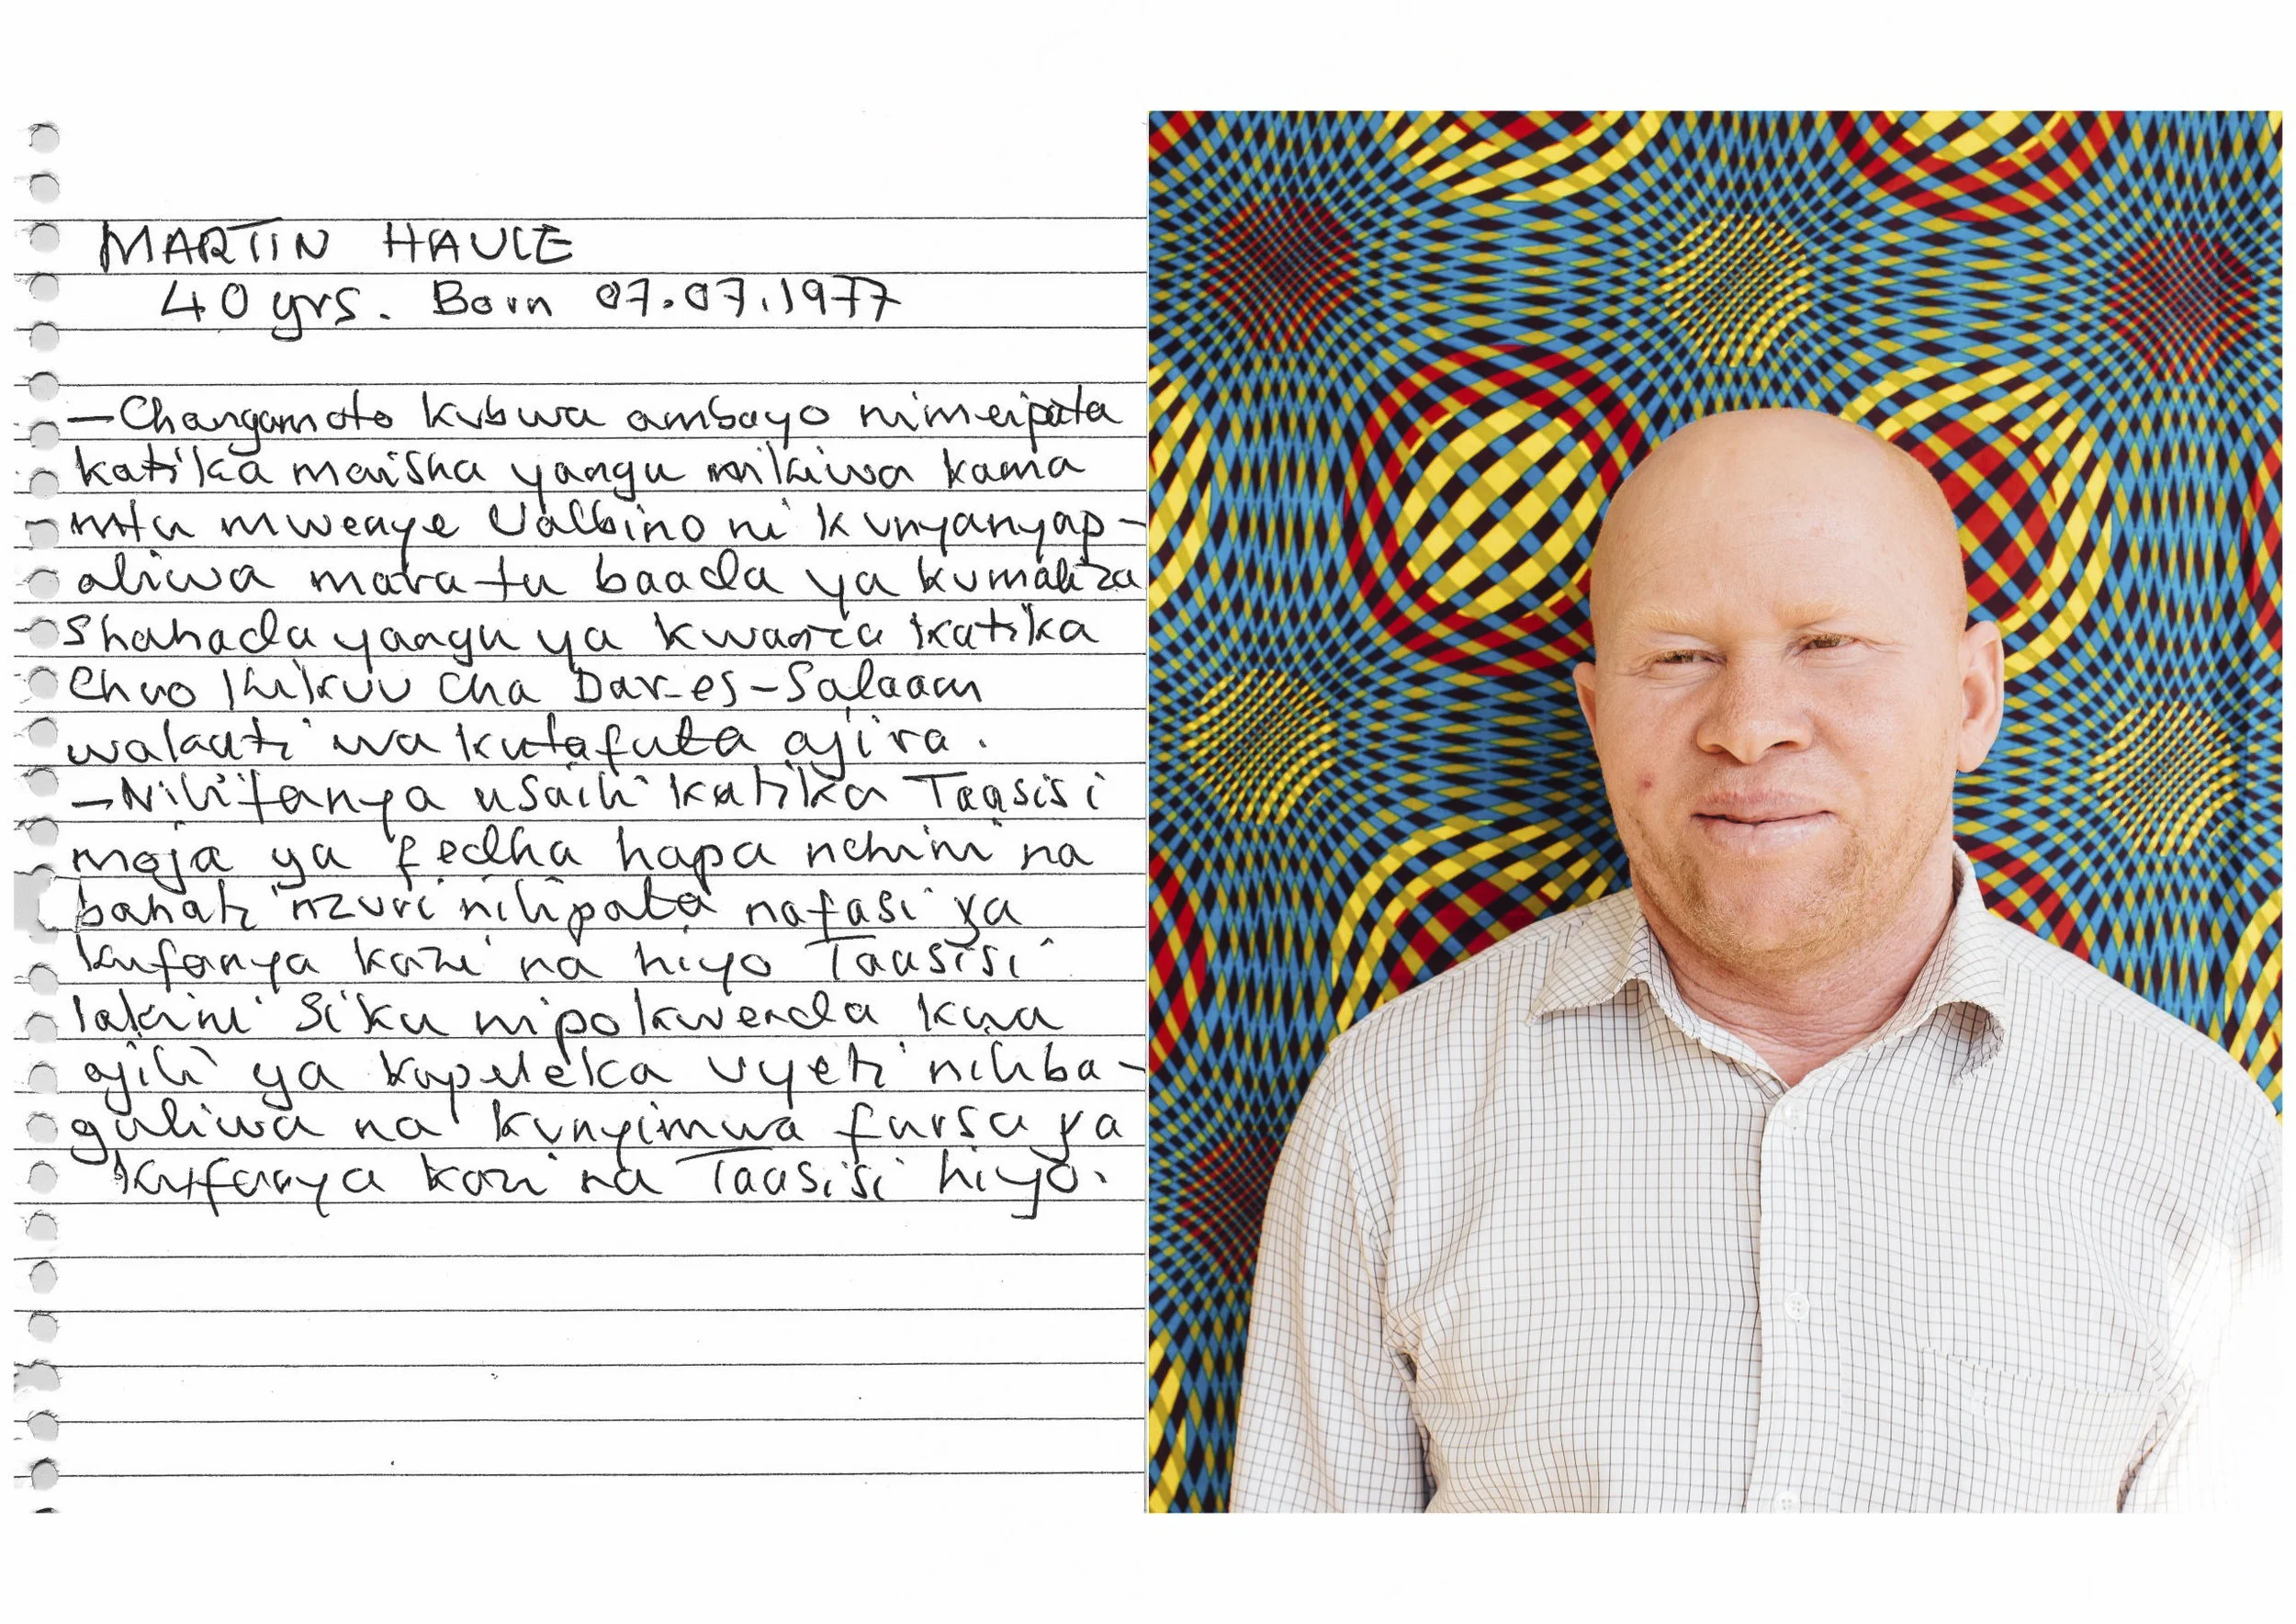 MARTIN HAULE
40 yrs. Born 07.07.1977
— Changamoto kubwa ambayo nimeipata
katika maisha yangu nikiwa kama
mtu mwenye Ualbino ni kunyanyap-
aliwa mara tu baada ya kumaliza
shahada yangu ya kwanza katika
Chuo Kikuu cha Dar-es-Salaam
wakati wa kutafuta ajira.
— Nilifanya usaili katika Taasisi
moja ya fedha hapa nchini na
bahati nzuri nilipata nafasi ya
kufanya kazi na hiyo Taasisi
lakini siku nipokwenda kwa
ajili ya kupeleka vyeti niliba-
guliwa na kunyimwa fursa ya
kufanya kazi na Taasisi hiyo.